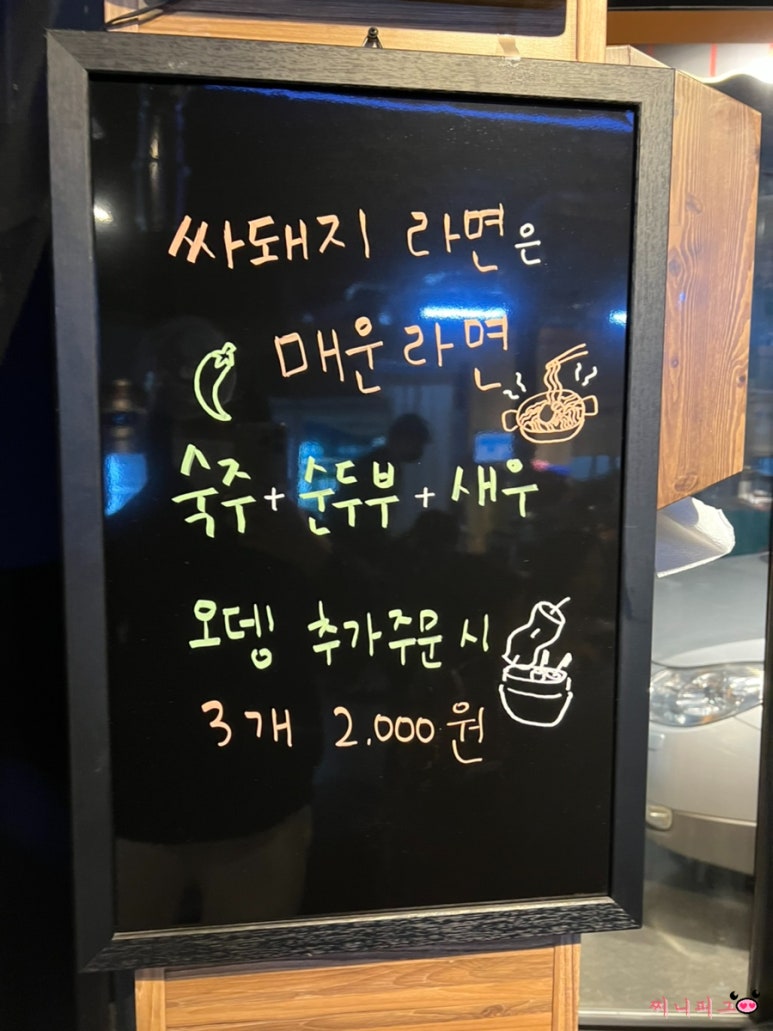 싸돼지 라면은
매운라면
숙주+순두부+새우
오뎅 추가주문 시
3개 2.000원
찌니피그